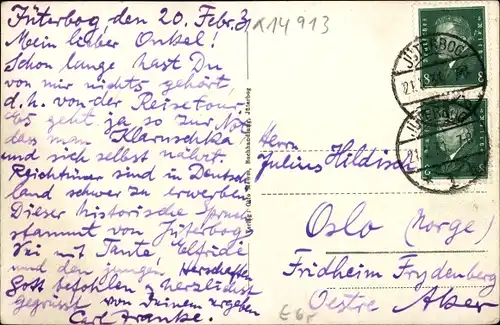 Jüterbog, den 20. Febr. 31
Mein lieber Onkel!
Schon lange hast Du
von mir nichts gehört,
d.h. von der Reisetour.
Es geht ja so zur Not,
dass man
und sich selbst nährt.
Reichtümer sind in Deutsch-
land schwer zu erwerben.
Dieser historische Spruch
stammt von Jüterbog.
Sei mit Tante, Elfride
und den jungen Herschaften
Gott befohlen u herzlichst
gegrüsst von Deinem ergeben
Carl Franke.
x14913
JÜTERBOG
8
JÜTERBOG
Herrn
Julius Hildisch
Oslo (Norge)
Fridheim Frydenberg
Oestre Aker